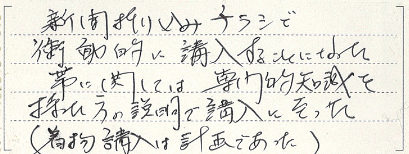 新聞折り込みチラシで
衝動的に講入することになった
帯に関しては専門的知識を
持った方の説明で講入に至った
(着物講入は計画であった)